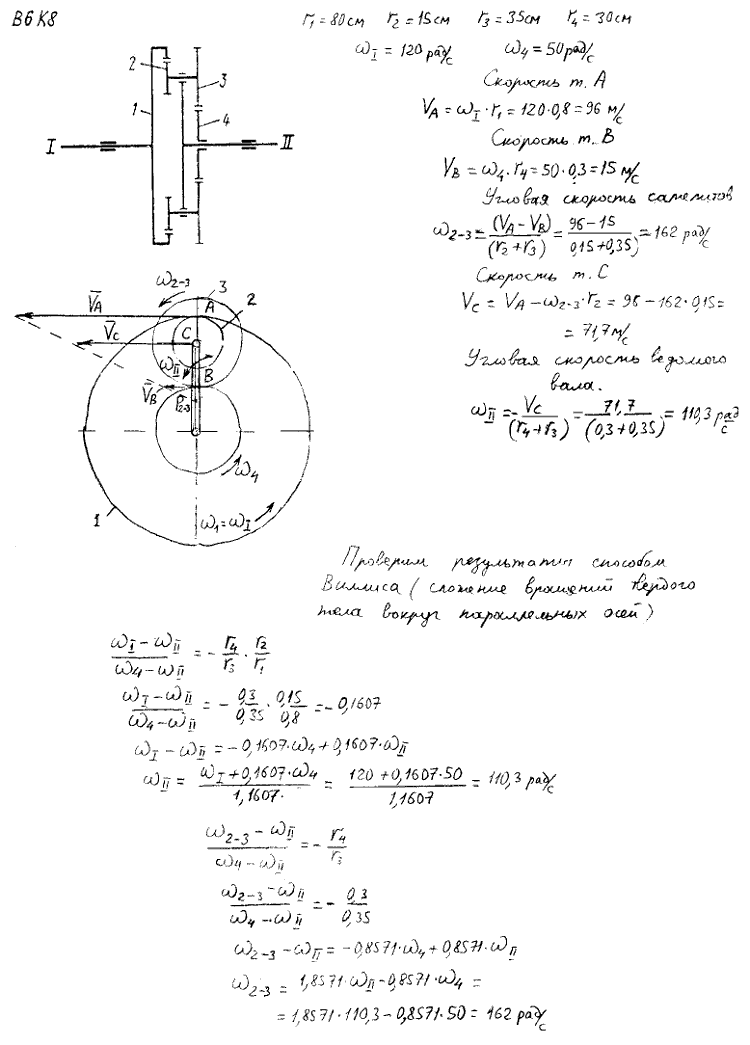 В6К8
r₁ = 80см r₂ = 15см r₃ = 35см r₄ = 30см
ω_I = 120 рад/с ω₄ = 50 рад/с
Скорость т. А
V_A = ω_I · r₁ = 120·0,8 = 96 м/с
Скорость т. В
V_B = ω₄ · r₄ = 50·0,3 = 15 м/с
Угловая скорость сателитов
ω₂₋₃ = (V_A − V_B)/(r₂ + r₃) = (96 − 15)/(0,15 + 0,35) = 162 рад/с
Скорость т. С
V_C = V_A − ω₂₋₃ · r₂ = 96 − 162·0,15 =
= 71,7 м/с
Угловая скорость ведомого
вала.
ω_II = V_C/(r₄ + r₃) = 71,7/(0,3 + 0,35) = 110,3 рад/с
2
3
1
4
I
II
ω₂₋₃
3
V̄_A
A
2
V̄_C
C
ω_II
B
V̄_B
P₂₋₃
ω₄
1
ω₁ = ω_I
Проверим результаты способом
Виллиса (сложение вращений твердого
тела вокруг параллельных осей)
(ω_I − ω_II)/(ω₄ − ω_II) = − r₄/r₃ · r₂/r₁
(ω_I − ω_II)/(ω₄ − ω_II) = − 0,3/0,35 · 0,15/0,8 = − 0,1607
ω_I − ω_II = −0,1607·ω₄ + 0,1607·ω_II
ω_II = (ω_I + 0,1607·ω₄)/1,1607· = (120 + 0,1607·50)/1,1607 = 110,3 рад/с
(ω₂₋₃ − ω_II)/(ω₄ − ω_II) = − r₄/r₃
(ω₂₋₃ − ω_II)/(ω₄ − ω_II) = − 0,3/0,35
ω₂₋₃ − ω_II = −0,8571·ω₄ + 0,8571·ω_II
ω₂₋₃ = 1,8571·ω_II − 0,8571·ω₄ =
= 1,8571·110,3 − 0,8571·50 = 162 рад/с